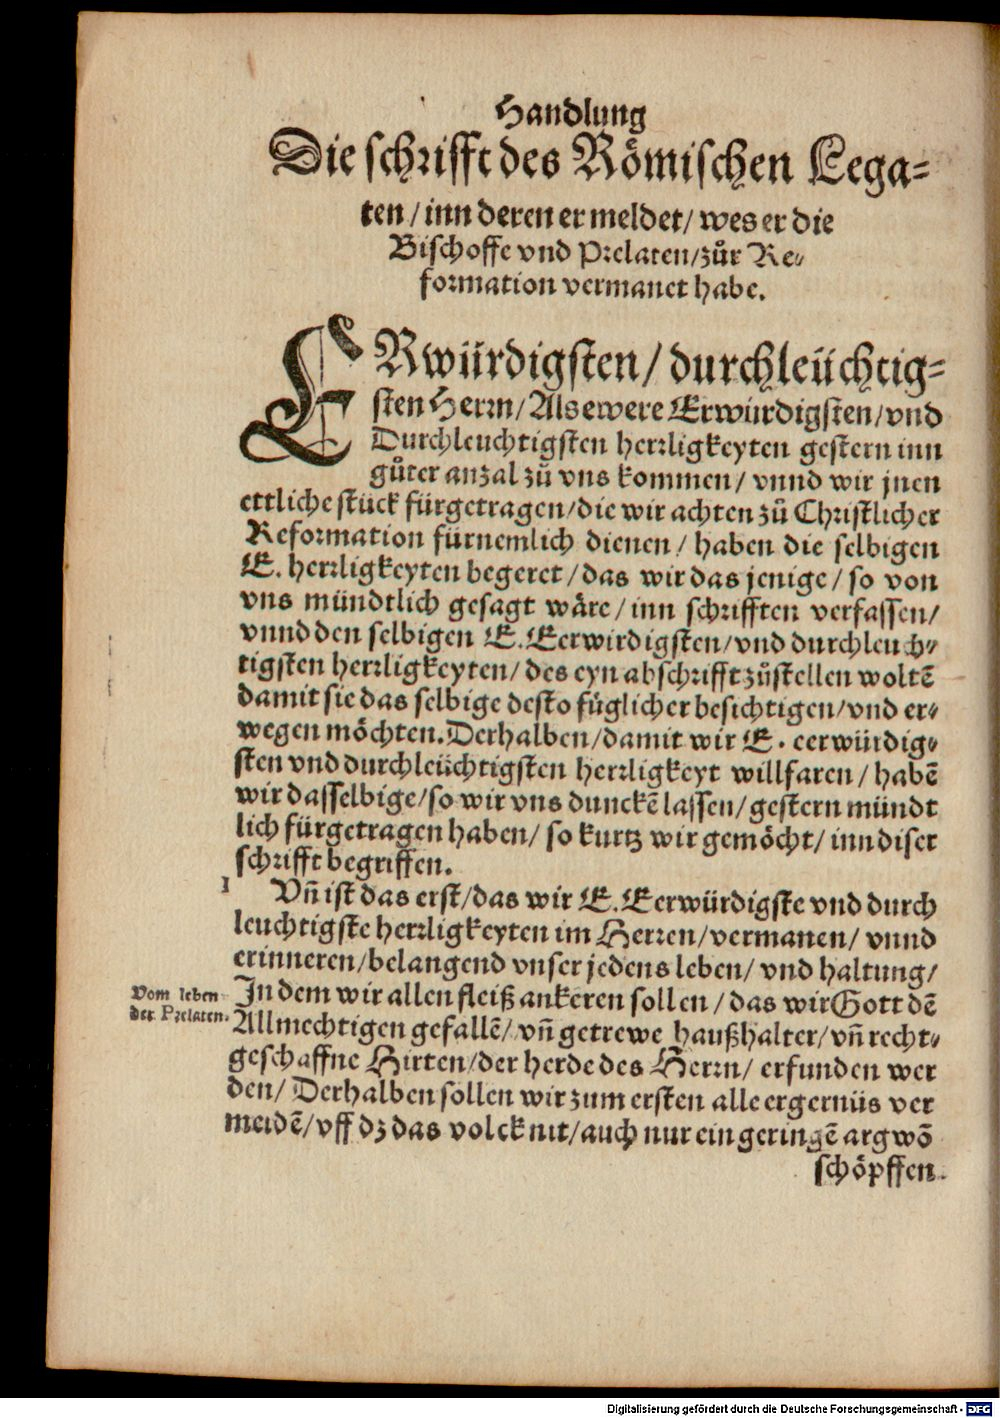 Handlung
Die schrifft des Römischen Lega-
ten / inn deren er meldet / wes er die
Bischoffe vnd Prelaten / zůr Re-
formation vermanet habe.
ERwürdigsten / durchleüchtig-
sten Herrn / Als ewere Erwürdigsten / vnd
Durchleuchtigsten herrligkeyten gestern inn
gůter anzal zů vns kommen / vnnd wir jnen
ettliche stück fürgetragen / die wir achten zů Christlicher
Reformation fürnemlich dienen / haben die selbigen
E. herrligkeyten begeret / das wir das jenige / so von
vns mündtlich gesagt wäre / inn schrifften verfassen /
vnnd den selbigen E. Eerwirdigsten / vnd durchleuch-
tigsten herrligkeyten / des eyn abschrifft zůstellen woltē
damit sie das selbige desto füglicher besichtigen / vnd er-
wegen möchten. Derhalben / damit wir E. eerwürdig-
sten vnd durchleüchtigsten herrligkeyt willfaren / habē
wir dasselbige / so wir vns dunckē lassen / gestern mündt
lich fürgetragen haben / so kurtz wir gemöcht / inn diser
schrifft begriffen.
1 Vñ ist das erst / das wir E. Eerwürdigste vnd durch
leuchtigste herrligkeyten im Herren / vermanen / vnnd
erinneren / belangend vnser jedens leben / vnd haltung /
Vom leben
der Prelaten.
In dem wir allen fleiß ankeren sollen / das wir Gott dē
Allmechtigen gefallē / vñ getrewe haußhalter / vñ recht-
geschaffne Hirten / der herde des Herrn / erfunden wer
den / Derhalben sollen wir zum ersten alle ergernüs ver
meidē / vff dz das volck nit / auch nur ein geringē argwō
schöpffen.
Digitalisierung gefördert durch die Deutsche Forschungsgemeinschaft - DFG